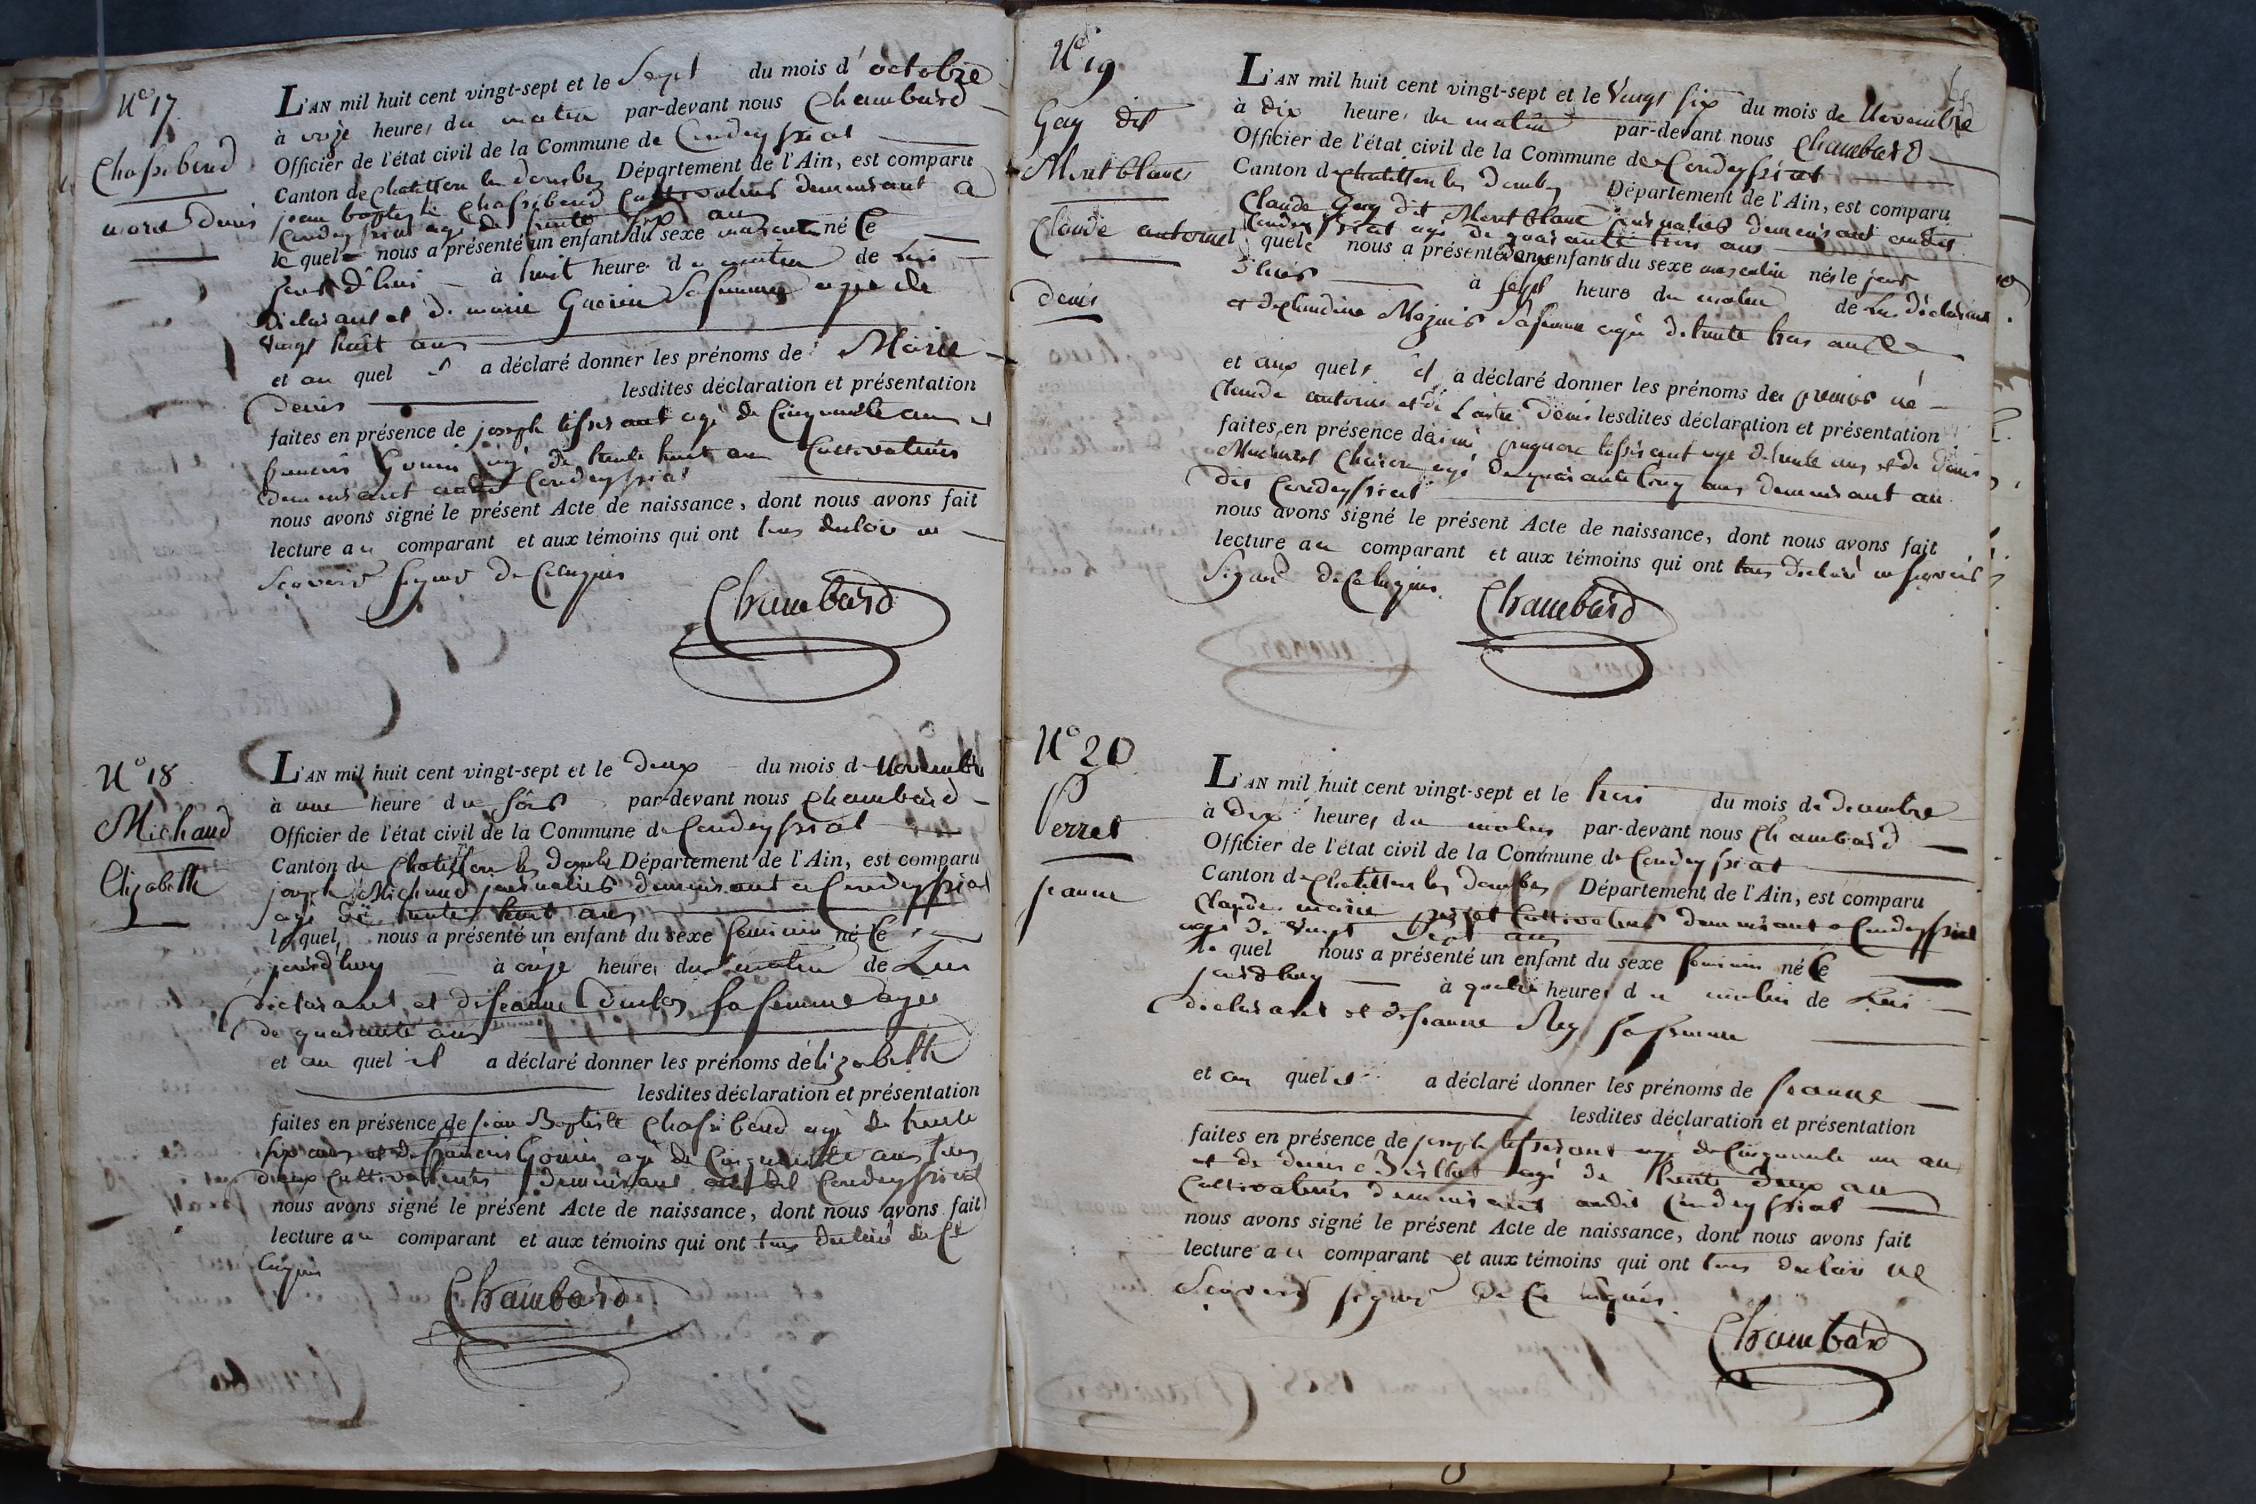 N° 17
Chassiboud
marie denis
L'AN mil huit cent vingt-sept et le Sept du mois d'octobre
à onze heures du matin par-devant nous Chambard
Officier de l'état civil de la Commune de Condeyssiat
Canton de Chatillon les Dombes Département de l'Ain, est comparu
jean baptiste Chassiboud Cultivateur demeurant a
Condeyssiat agé de trente six ans
le quel nous a présenté un enfant du sexe masculin né Ce
jourd'hui à huit heure du matin de Lui
Déclarant et de marie Gouin Sa femme agée de
Vingt huit ans
et au quel il a déclaré donner les prénoms de Marie
denis lesdites déclaration et présentation
faites en présence de joseph tisserant agé de Cinquante ans et
francois Gouin agé de trente huit ans Cultivateurs
demeurant audit Condeyssiat
nous avons signé le présent Acte de naissance, dont nous avons fait
lecture au comparant et aux témoins qui ont tous declaré ne
Scavoir signer de Ce enquis
Chambard
N° 18
Michaud
Elizabeth
L'AN mil huit cent vingt-sept et le Deux du mois d Novembre
à une heure du soir par-devant nous Chambard
Officier de l'état civil de la Commune de Condeyssiat
Canton de Chatillon les Dombes Département de l'Ain, est comparu
joseph Michaud journalier demeurant a Condeyssiat
agé de trente huit ans
le quel nous a présenté un enfant du sexe feminin né Ce
jourd'huy à onze heures du matin de Lui
déclarant et de jeanne sa femme agée
de quarante ans
et au quel il a déclaré donner les prénoms d'élizabeth
lesdites déclaration et présentation
faites en présence de jean Baptiste Chassiboud agé de trente
six ans et de francois Gouin agé de Cinquante ans tous
deux Cultivateurs demeurant audit Condeyssiat
nous avons signé le présent Acte de naissance, dont nous avons fait
lecture au comparant et aux témoins qui ont tous declaré de Ce
enquis
Chambard
N° 19
Gay dit
Montblanc
Claude antoine
denis
L'AN mil huit cent vingt-sept et le Vingt six du mois de Novembre
à dix heure du matin par-devant nous Chambard
Officier de l'état civil de la Commune de Condeyssiat
Canton de Chatillon les Dombes Département de l'Ain, est comparu
Claude Gay dit Montblanc journalier demeurant audit
Condeyssiat agé de quarante trois ans
quel nous a présenté deux enfants du sexe masculin nés le jour
d'hier à sept heure du matin de Lui déclarant
et de Claudine sa femme agée de trente trois ans
et aux quels il a déclaré donner les prénoms du premier né
Claude antoine et de L'autre denis lesdites déclaration et présentation
faites en présence de tisserant agé de trente ans et de denis
agé de quarante Cinq ans demeurant au
dit Condeyssiat
nous avons signé le présent Acte de naissance, dont nous avons fait
lecture au comparant et aux témoins qui ont tous declaré ne scavoir
Signer de Ce enquis
Chambard
N° 20
Perret
jeanne
L'AN mil huit cent vingt-sept et le trois du mois de decembre
à Dix heures du matin par-devant nous Chambard
Officier de l'état civil de la Commune de Condeyssiat
Canton de Chatillon les Dombes Département de l'Ain, est comparu
Claude marie perret Cultivateur demeurant a Condeyssiat
agé de vingt Sept ans
le quel nous a présenté un enfant du sexe feminin né Ce
jourdhuy à quatre heures du matin de Lui
déclarant et de jeanne Rey sa femme
et au quel il a déclaré donner les prénoms de jeanne
lesdites déclaration et présentation
faites en présence de joseph tisserant agé de Cinquante un ans
et de denis agé de trente deux ans
Cultivateurs demeurant audit Condeyssiat
nous avons signé le présent Acte de naissance, dont nous avons fait
lecture au comparant et aux témoins qui ont tous declaré ne
Scavoir signer de Ce enquis
Chambard